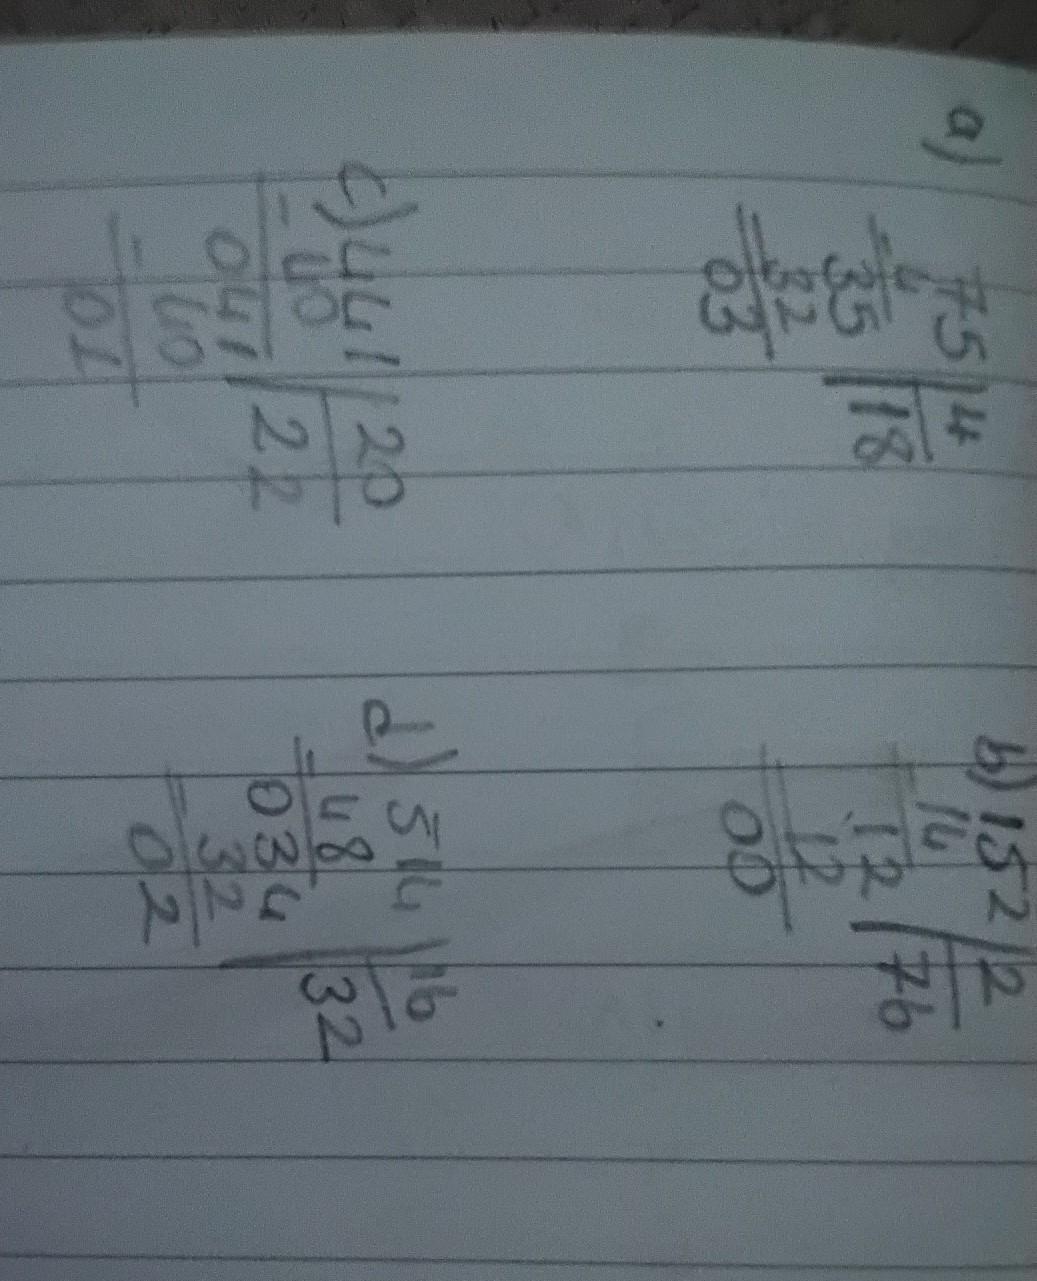 a) 75|4
- 4 |18
35
- 32
03
b) 152|2
- 14 |76
12
- 12
00
c) 441|20
- 40 |22
041
- 40
01
d) 514|16
- 48 |32
034
- 32
02